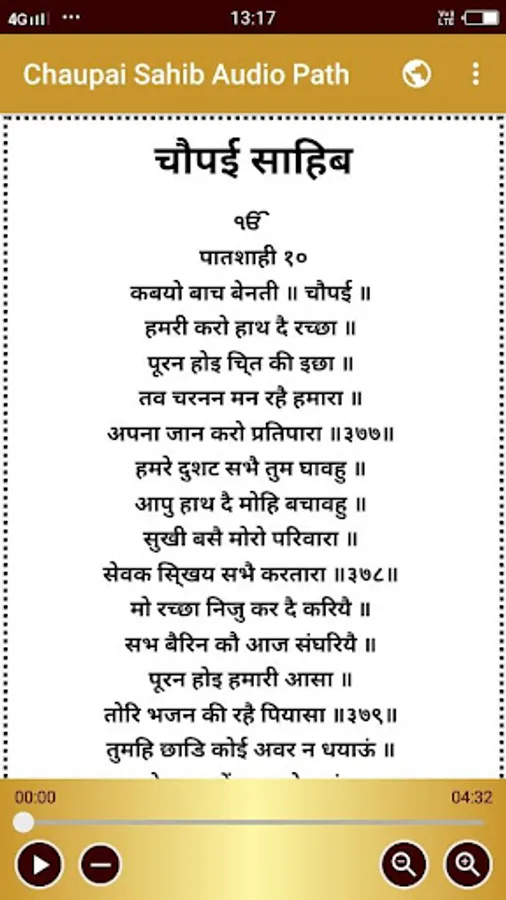 4G 13:17 VoLTE
Chaupai Sahib Audio Path
चौपई साहिब
ੴ
पातशाही १०
कबयो बाच बेनती ॥ चौपई ॥
हमरी करो हाथ दै रच्छा ॥
पूरन होइ चि्त की इछा ॥
तव चरनन मन रहै हमारा ॥
अपना जान करो प्रतिपारा ॥३७७॥
हमरे दुशट सभै तुम घावहु ॥
आपु हाथ दै मोहि बचावहु ॥
सुखी बसै मोरो परिवारा ॥
सेवक सि्खय सभै करतारा ॥३७८॥
मो रच्छा निजु कर दै करियै ॥
सभ बैरिन कौ आज संघरियै ॥
पूरन होइ हमारी आसा ॥
तोरि भजन की रहै पियासा ॥३७९॥
तुमहि छाडि कोई अवर न धयाऊं ॥
00:00 04:32